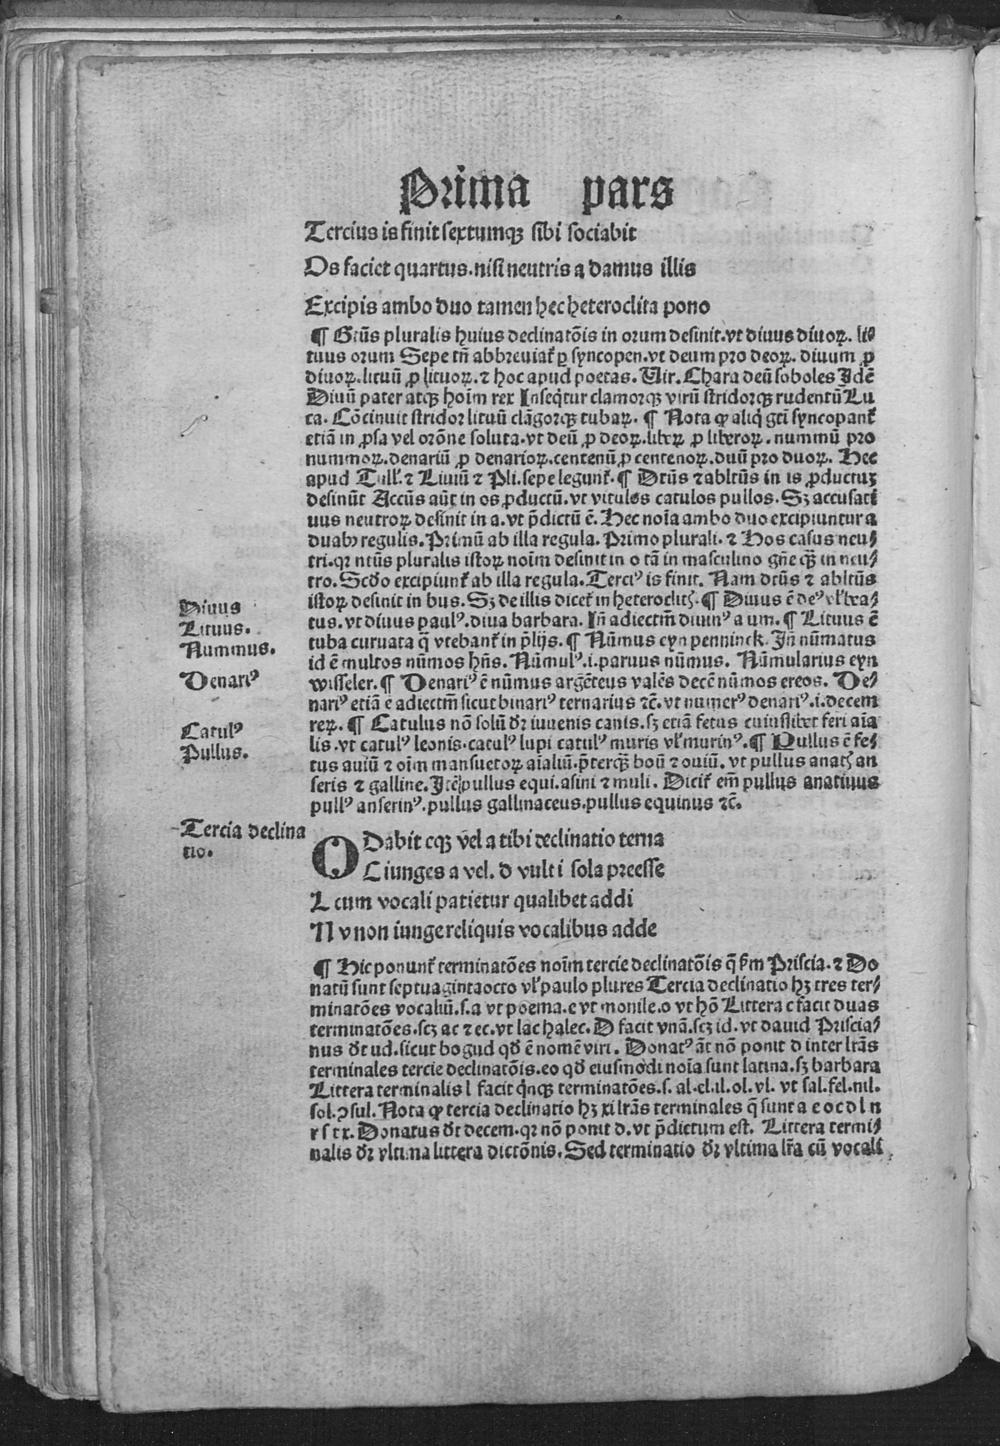 Prima pars
Tercius is finit sextumqꝫ sibi sociabit
Os faciet quartus. nisi neutris a damus illis
Excipis ambo duo tamen hec heteroclita pono
¶ Gtūs pluralis huius declinatōis in orum desinit. vt diuus diuoꝝ. li⸗
tuus orum Sepe tn̄ abbreuiat᷑ ꝑ syncopen. vt deum pro deoꝝ. diuum ꝓ
diuoꝝ. lituū ꝓ lituoꝝ. ⁊ hoc apud poetas. Uir. Chara deū soboles Idē
Diuū pater atqꝫ hoīm rex Inseq̇tur clamorqꝫ virū stridorqꝫ rudentū Lu
ca. Cōtinuit stridor lituū clāgorqꝫ tubaꝝ. ¶ Nota ꝙ aliq̇ gti syncopant᷑
etiā in ꝓsa vel orōne soluta. vt deū ꝓ deoꝝ. libeꝝ ꝓ liberoꝝ. nummū pro
nummoꝝ. denariū ꝓ denarioꝝ. centenū ꝓ centenoꝝ. duū pro duoꝝ. Hec
apud Tull᷑. ⁊ Liuiū ⁊ Pli. sepe legunt᷑. ¶ Dtūs ⁊ abltūs in is ꝓductuꝫ
desinūt Accūs aūt in os ꝓductū. vt vitulos catulos pullos. Sꝫ accusati
uus neutroꝝ desinit in a. vt p̄dictū ē. Hec noīa ambo duo excipiuntur a
duabꝰ regulis. Primū ab illa regula. Primo plurali. ⁊ Hos casus neu⸗
tri. qꝛ ntūs pluralis istoꝝ noīm desinit in o tā in masculino gn̄e qꝫ̄ in neu⸗
tro. Scd̄o excipiunt᷑ ab illa regula. Terciꝰ is finit. Nam dtūs ⁊ abltūs
istoꝝ desinit in bus. Sꝫ de illis dicet᷑ in heteroclit. ¶ Diuus ē deꝰ vl᷑ bea⸗
tus. vt diuus paulꝰ. diua barbara. In̄ adiectm̄ diuinꝰ a um. ¶ Lituus ē
tuba curuata q̄ vtebant᷑ in p̄lijs. ¶ Nūmus eyn penninck. In̄ nūmatus
id ē multos nūmos hn̄s. Nūmulꝰ. i. paruus nūmus. Nūmularius eyn
wisseler. ¶ Denariꝰ ē nūmus argēteus valēs decē nūmos ereos. De⸗
nariꝰ etiā ē adiectm̄ sicut binariꝰ ternarius ⁊c̄. vt numerꝰ denariꝰ. i. decem
reꝝ. ¶ Catulus nō solū dr̄ iuuenis canis. sꝫ etiā fetus cuiuslibet feri aīa
lis. vt catulꝰ leonis. catulꝰ lupi catulꝰ muris vl᷑ murinꝰ. ¶ Pullus ē fe⸗
tus auiū ⁊ oīm mansuetoꝝ aīaliū. p̄terqꝫ̄ boū ⁊ ouiū. vt pullus anat an
seris ⁊ galline. Itē pullus equi. asini ⁊ muli. Dicit᷑ em̄ pullus anatinus
pullꝰ anserinꝰ. pullus gallinaceus. pullus equinus ⁊c̄.
Diuus
Lituus.
Nummus.
Denariꝰ
Catulꝰ
Pullus.
Tercia declina
tio.
O Dabit eqꝫ vel a tibi declinatio terna
C iunges a vel. d vult i sola preesse
L cum vocali patietur qualibet addi
N v non iunge reliquis vocalibus adde
¶ Hic ponunt᷑ terminatōes noīm tercie declinatōis q̄ ẜm Priscia. ⁊ Do
natū sunt septuagintaocto vl᷑ paulo plures Tercia declinatio hꝫ tres ter⸗
minatōes vocaliū. s. a vt poema. e vt monile. o vt hō Littera c facit duas
terminatōes. scꝫ ac ⁊ ec. vt lac halec. D facit vnā. scꝫ id. vt dauid Priscia⸗
nus dt̄ ud. sicut bogud qd̄ ē nomē viri. Donatꝰ āt nō ponit d inter lr̄as
terminales tercie declinatōis. eo qd̄ eiusmodi noīa sunt latina. sꝫ barbara
Littera terminalis l facit q̇nqꝫ terminatōes. s. al. el. il. ol. vl. vt sal. fel. nil.
sol. ꝯsul. Nota ꝙ tercia declinatio hꝫ xi lr̄as terminales q̄ sunt a e o c d l n
r s t x. Donatus dt̄ decem. qꝛ nō ponit d. vt p̄dictum est. Littera termi⸗
nalis dr̄ vltima littera dictōnis. Sed terminatio dr̄ vltima lr̄a cū vocali